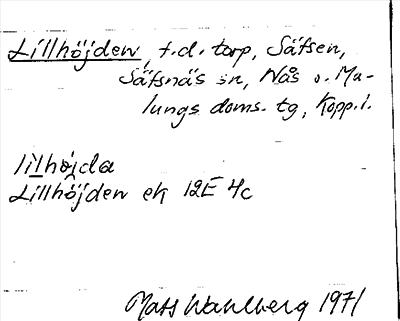 Lillhöjden, f.d. torp, Säfsen,
Säfsnäs sn, Nås o. Ma-
lungs doms. tg, Kopp. l.
lilhöjda
Lillhöjden ek 12E 4c
Mats Wahlberg 1971